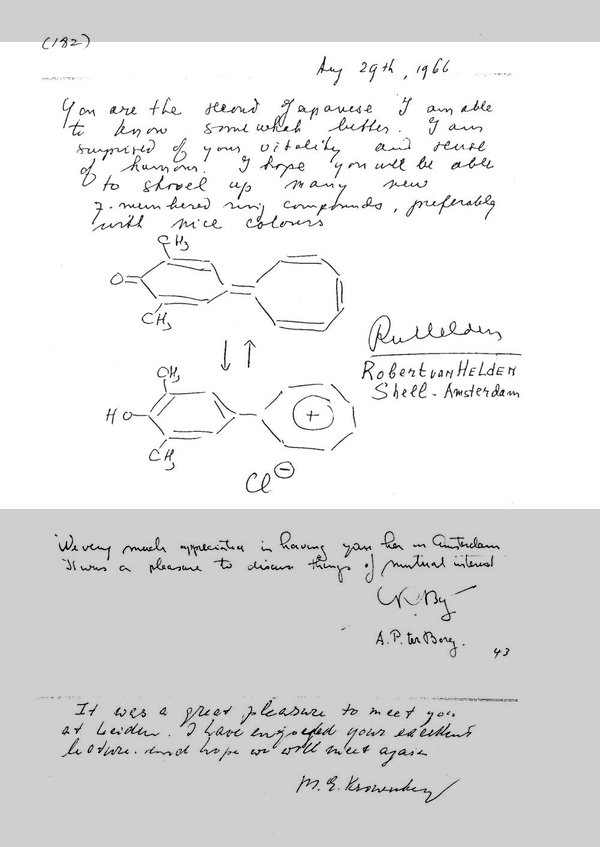 (182)
Aug 29th, 1966
You are the second Japanese I am able
to know somewhat better. I am
surprised of your vitality and sense
of humour. I hope you will be able
to shovel up many new
7-membered ring compounds, preferably
with nice colours
CH3
O=
CH3
CH3
HO-
+
CH3
Cl⊖
RvHelden
Robert van HELDEN
Shell - Amsterdam
We very much appreciated in having you her in Amsterdam
It was a pleasure to discuss things of mutual interest
A.P. ter Borg.
43
It was a great pleasure to meet you
at Leiden. I have enjoyed your excellent
lecture. and hope we will meet again
M.E. Kronenberg